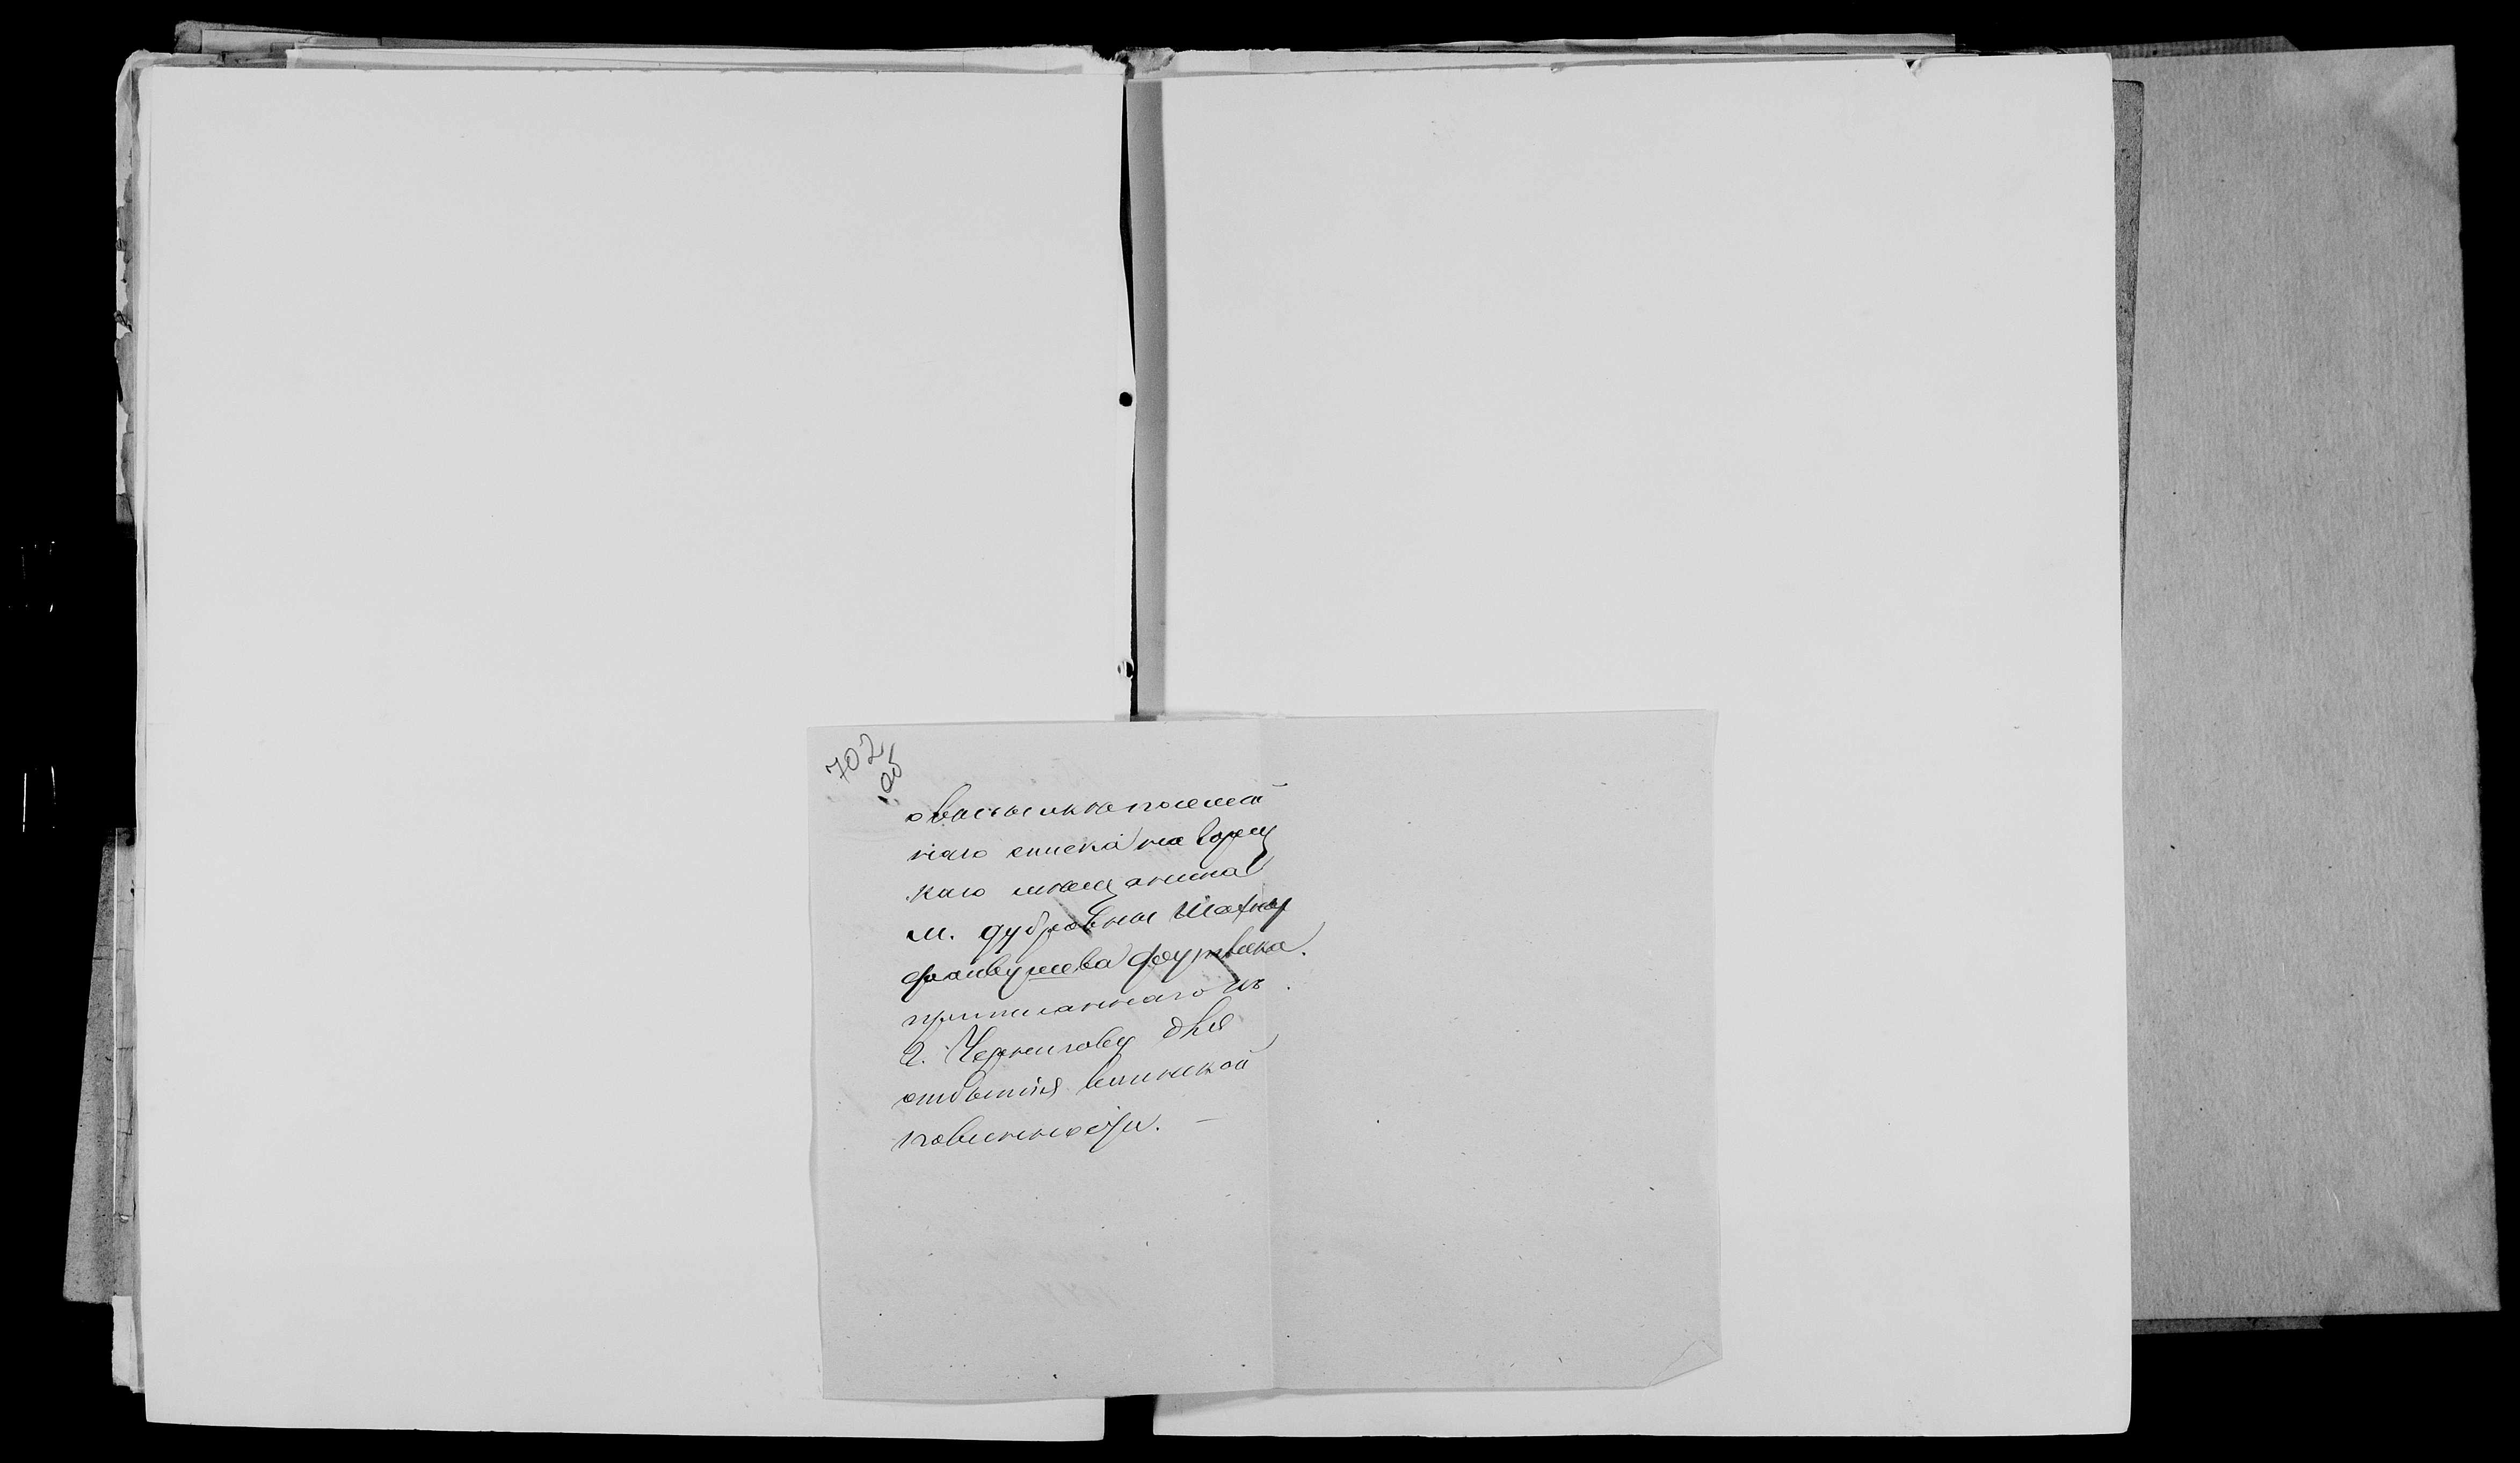 702
об
о высылке посемей
наго списка на Горец
каго мещанина
м. Дубровны Шахну
Файвушева Футвака.
приписаннаго къ
г. Чернигову для
отбытія воинской
повинности. —